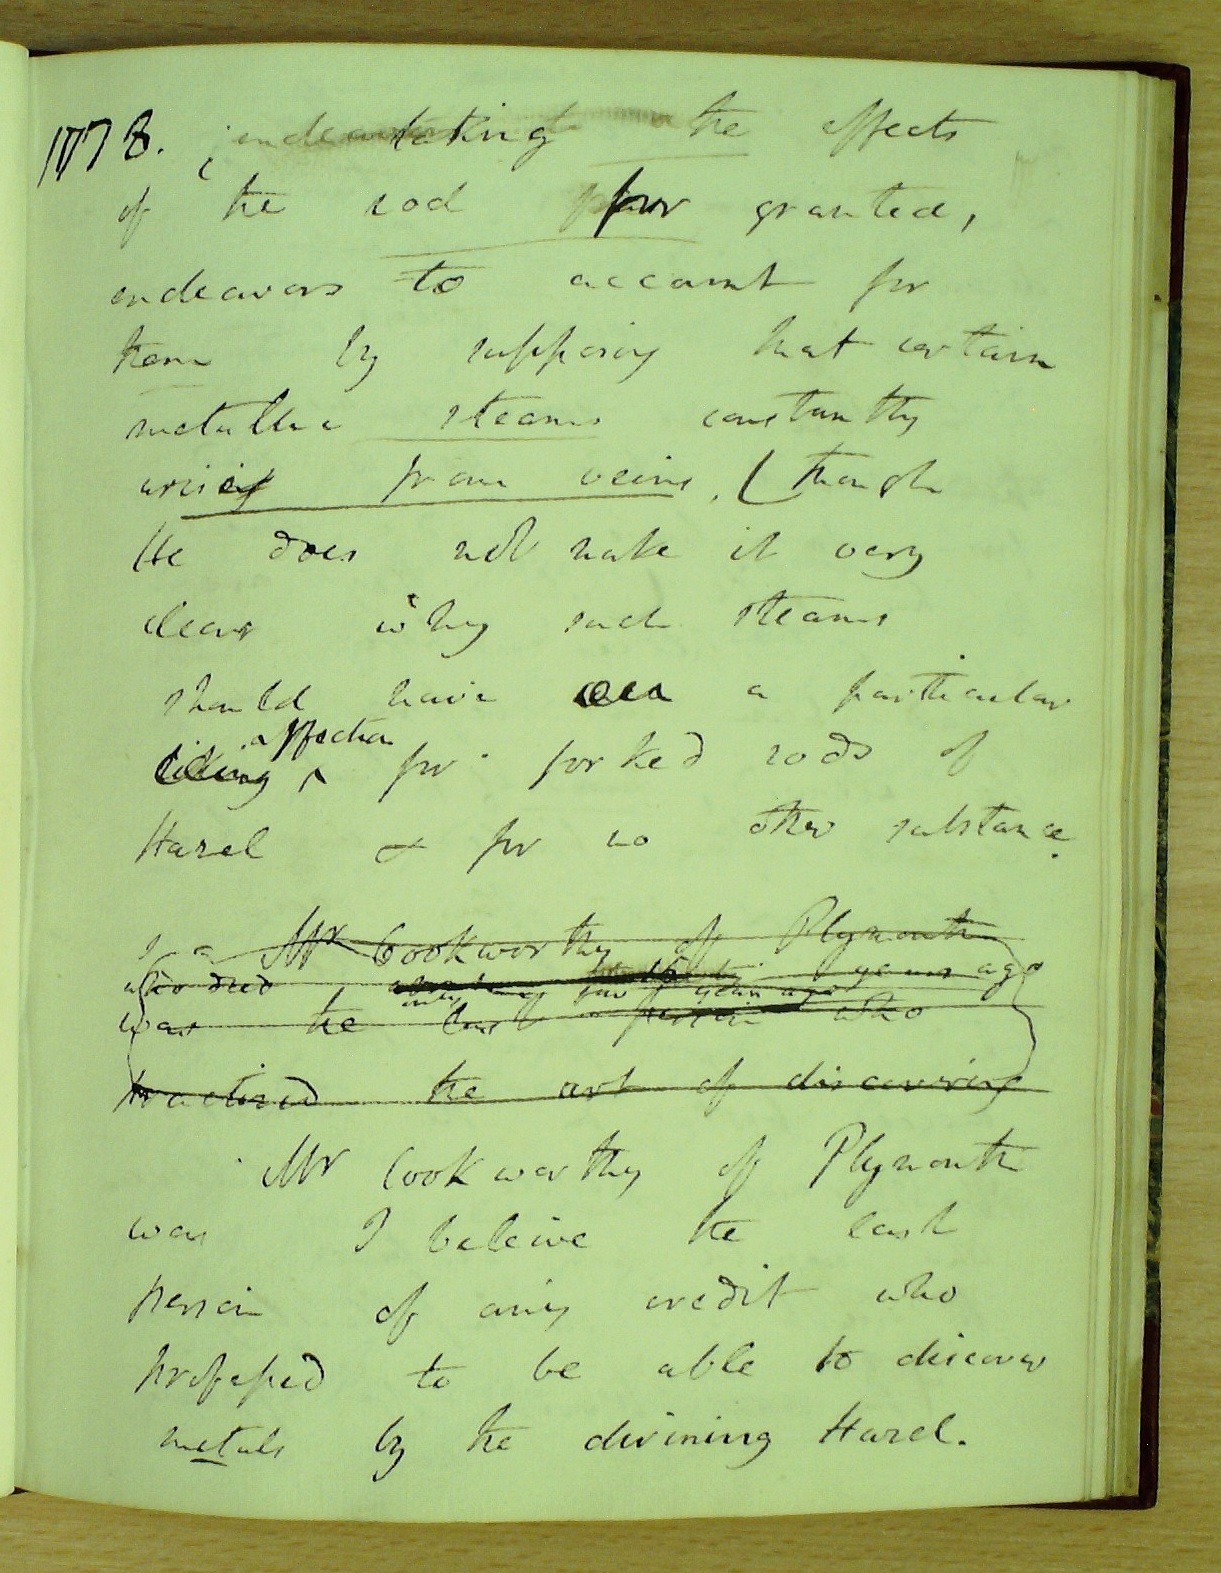 1778. taking the effects
of the rod for granted,
endeavors to account for
them by supposing that certain
metallic steams constantly
arising from veins, (though
He does not make it very
clear why such steams
should have a particular
affection
liking ^ for forked rods of
Hazel & for no other substance.
Mr Cookworthy of Plymouth
who died years ago
only few years ago
was the last person who
practised the art of discovering
Mr Cookworthy of Plymouth
was I beleive the last
person of any credit who
professed to be able to discover
metals by the divining Hazel.